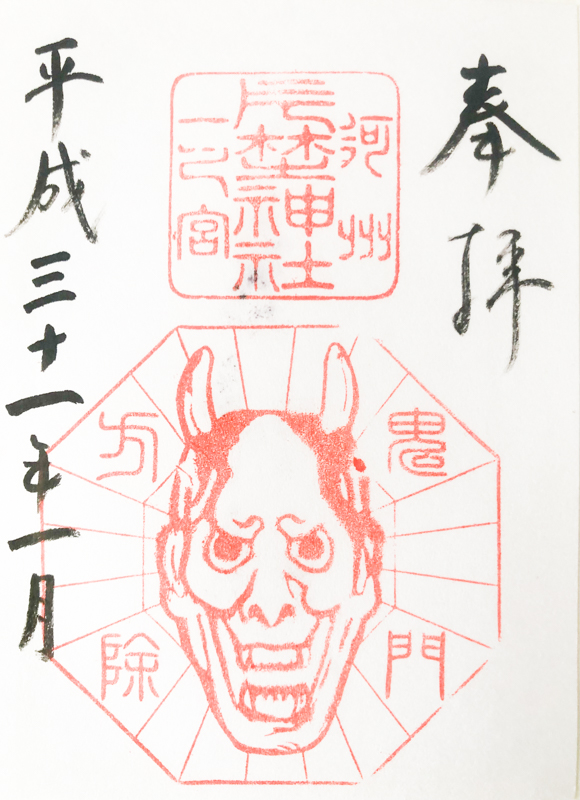 奉拝
河州
片埜神社
一之宮
鬼門
方除
平成三十一年一月